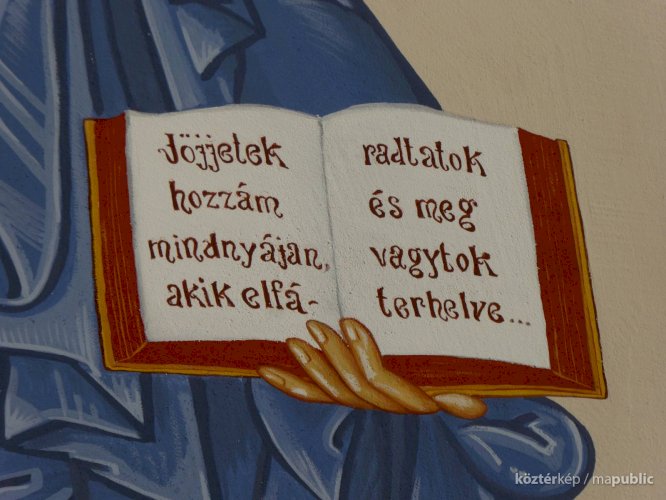 Jöjjetek
hozzám
mindnyáján,
akik elfá-
radtatok
és meg
vagytok
terhelve...
köztérkép / mapublic